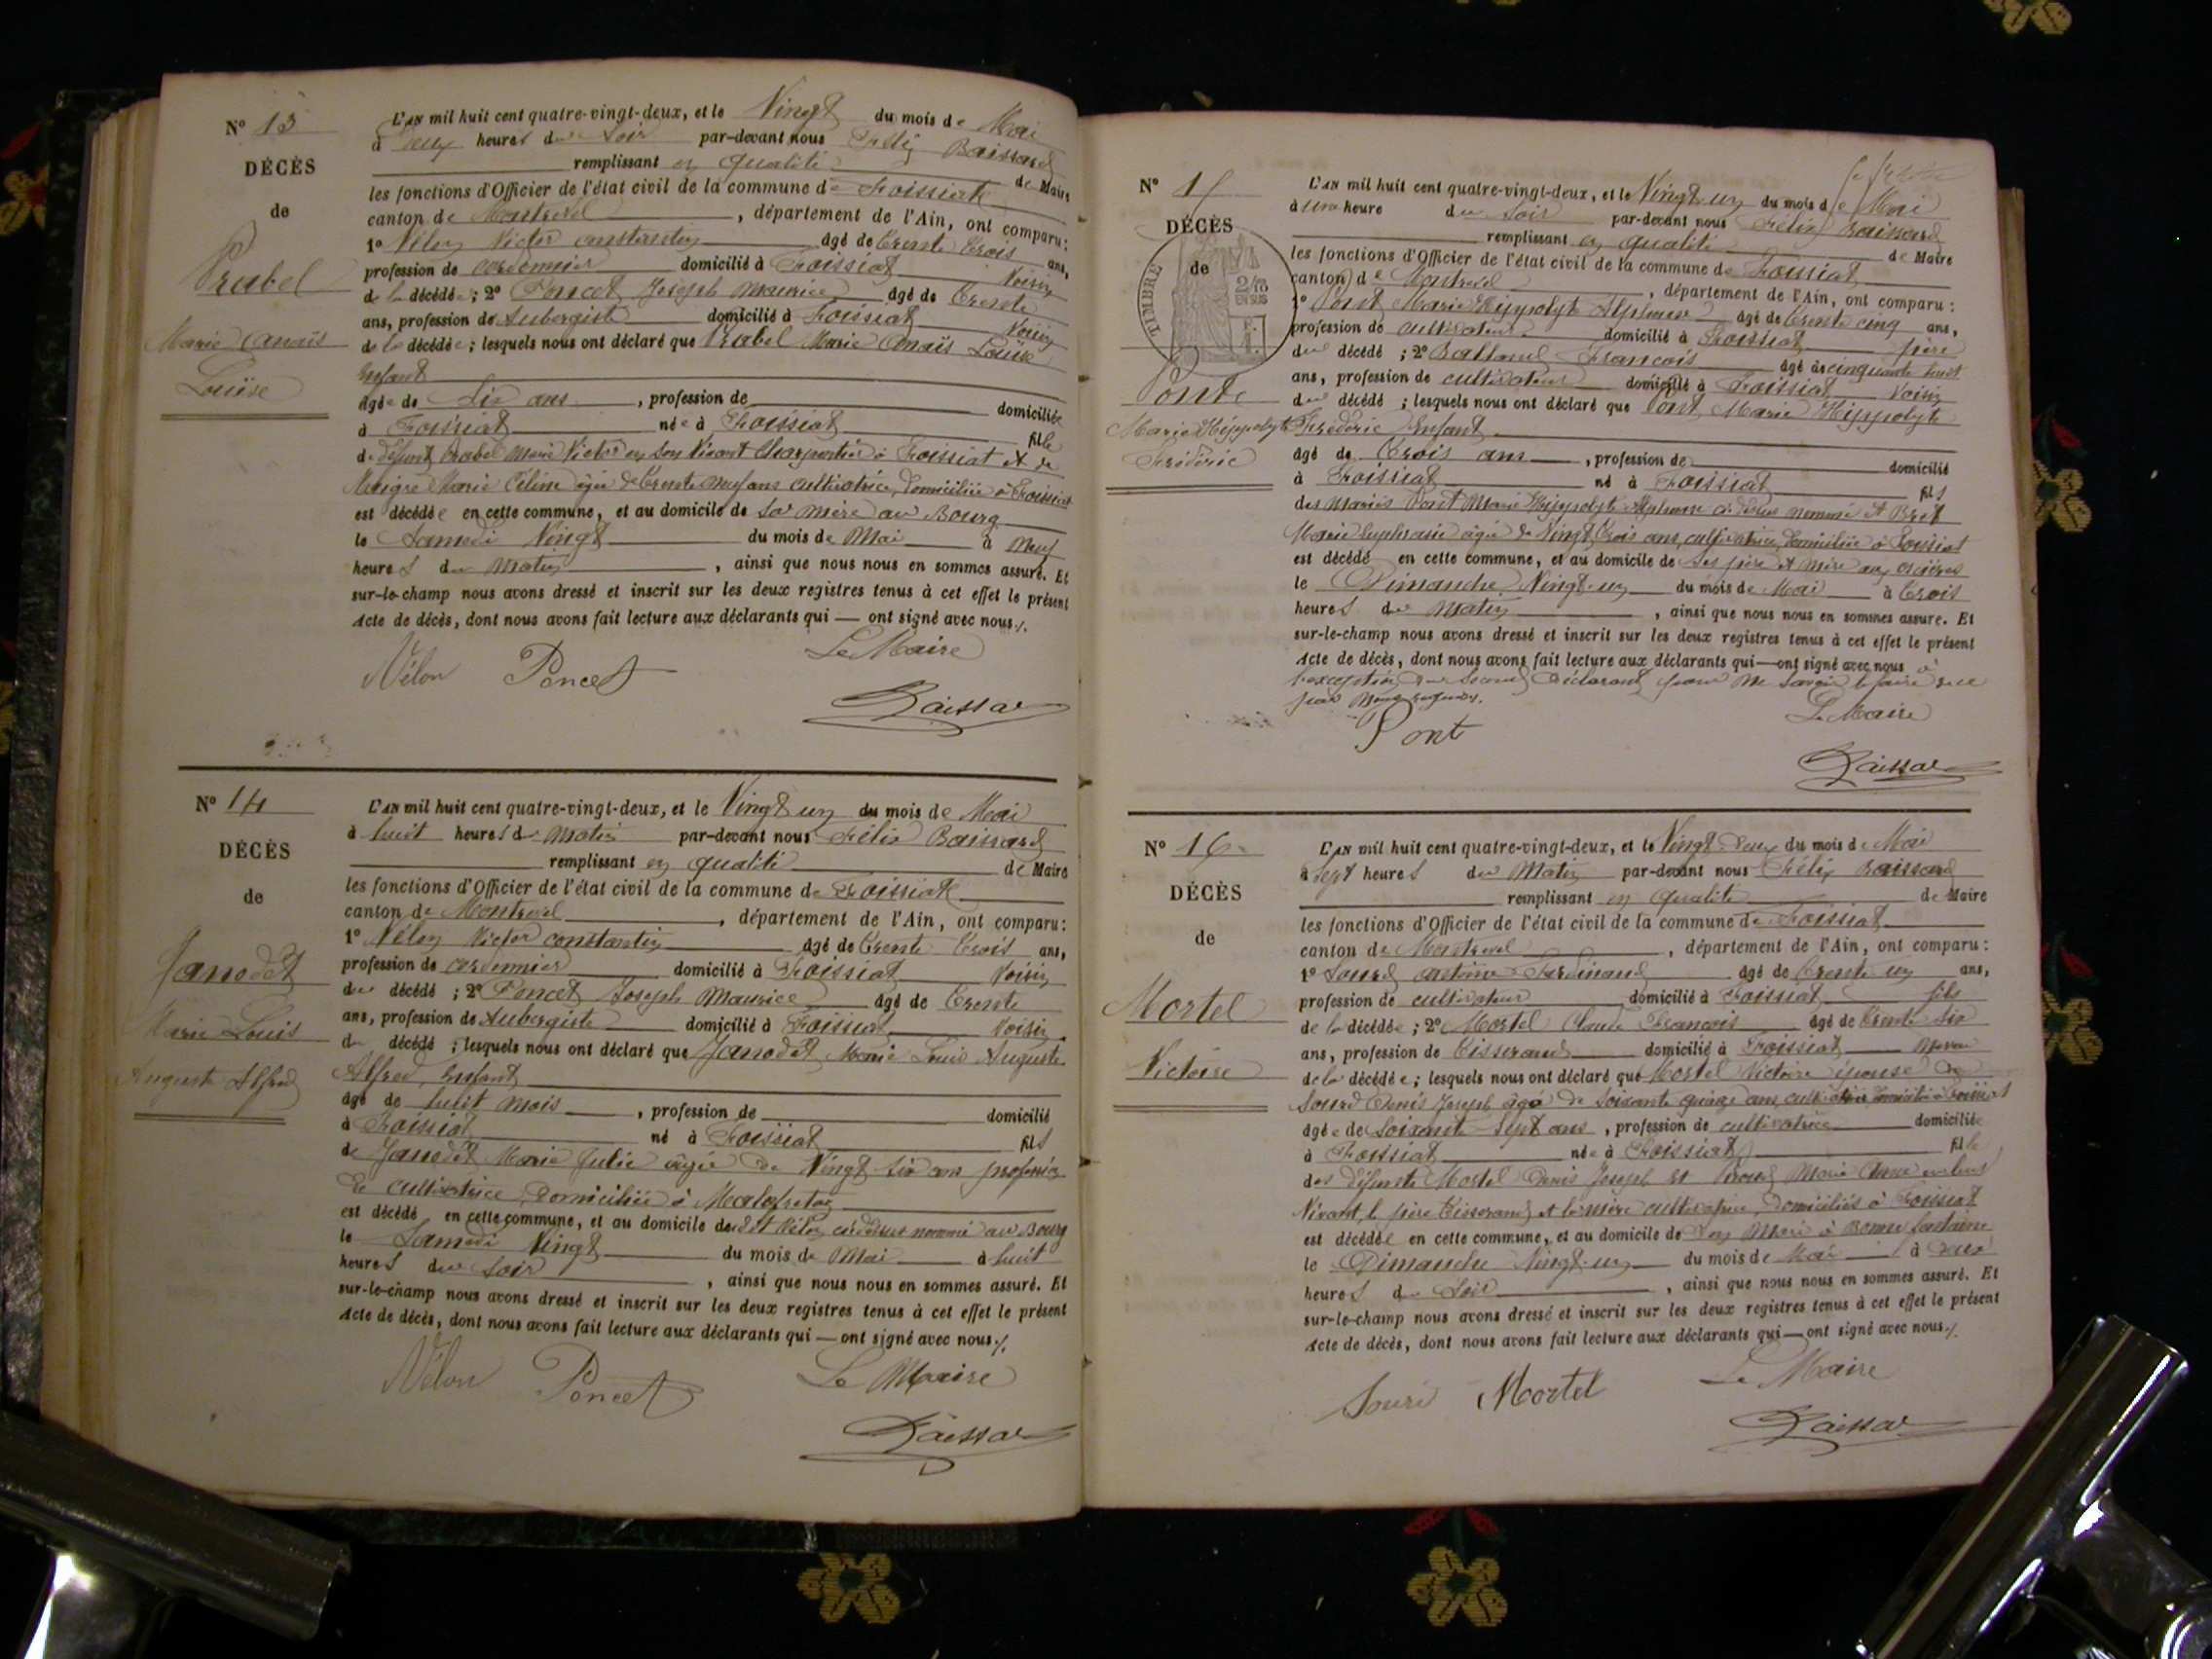 N° 13
DÉCÈS
de
Prabel
Marie Anaïs
Louïse
L'AN mil huit cent quatre-vingt-deux, et le Vingt du mois de Mai
à Deux heures du soir par-devant nous Félix Baissard
remplissant en qualité de Maire
les fonctions d'Officier de l'état civil de la commune de Foissiat
canton de Montrevel, département de l'Ain, ont comparu:
1° Vélon Victor constantin âgé de trente trois ans,
profession de cordonnier domicilié à Foissiat Voisin
de la décédée; 2° Poncet Joseph Maurice âgé de trente
ans, profession de Aubergiste domicilié à Foissiat Voisin
de la décédée; lesquels nous ont déclaré que Prabel Marie Anaïs Louïse
Enfant
âgée de dix ans, profession de domiciliée
à Foissiat née à Foissiat fille
de défunt Prabel Marie Victor en son Vivant Charpentier à Foissiat et de
Marie Céline âgée de trente neuf ans cultivatrice, domiciliée à Foissiat
est décédée en cette commune, et au domicile de sa mère au Bourg
le Samedi Vingt du mois de Mai à Neuf
heures du Matin, ainsi que nous nous en sommes assuré. Et
sur-le-champ nous avons dressé et inscrit sur les deux registres tenus à cet effet le présent
Acte de décès, dont nous avons fait lecture aux déclarants qui — ont signé avec nous ./.
Vélon Poncet Le Maire
Baissard
N° 14
DÉCÈS
de
Janodet
Marie Louis
Auguste Alfred
L'AN mil huit cent quatre-vingt-deux, et le Vingt un du mois de Mai
à huit heures du Matin par-devant nous Félix Baissard
remplissant en qualité de Maire
les fonctions d'Officier de l'état civil de la commune de Foissiat
canton de Montrevel, département de l'Ain, ont comparu:
1° Vélon Victor constantin âgé de trente trois ans,
profession de cordonnier domicilié à Foissiat Voisin
du décédé; 2° Poncet Joseph Maurice âgé de trente
ans, profession de Aubergiste domicilié à Foissiat Voisin
du décédé; lesquels nous ont déclaré que Janodet Marie Louis Auguste
Alfred, Enfant
âgé de huit mois, profession de domicilié
à Foissiat né à Foissiat fils
de Janodet Marie Julie âgée de Vingt six ans profession
de cultivatrice, domiciliée à Malafretaz
est décédé en cette commune, et au domicile dudit Vélon ci-dessus nommé au Bourg
le Samedi Vingt du mois de Mai à huit
heures du soir, ainsi que nous nous en sommes assuré. Et
sur-le-champ nous avons dressé et inscrit sur les deux registres tenus à cet effet le présent
Acte de décès, dont nous avons fait lecture aux déclarants qui — ont signé avec nous ./.
Vélon Poncet Le Maire
Baissard
N° 15
DÉCÈS
de
TIMBRE
2/10
EN SUS
Pont
Marie Hippolyte
Frédéric
L'AN mil huit cent quatre-vingt-deux, et le Vingt un du mois de Mai
à une heure du soir par-devant nous Félix Baissard
remplissant en qualité de Maire
les fonctions d'Officier de l'état civil de la commune de Foissiat
canton de Montrevel, département de l'Ain, ont comparu:
1° Pont Marie Hippolyte Alphonse âgé de trente cinq ans,
profession de cultivateur domicilié à Foissiat père
du décédé; 2° François âgé de cinquante huit
ans, profession de cultivateur domicilié à Foissiat Voisin
du décédé; lesquels nous ont déclaré que Pont Marie Hippolyte
Frédéric Enfant
âgé de trois ans, profession de domicilié
à Foissiat né à Foissiat fils
des Mariés Pont Marie Hippolyte Alphonse ci-dessus nommé et
Marie âgée de Vingt trois ans, cultivatrice, domiciliée à Foissiat
est décédé en cette commune, et au domicile de ses père et mère aux
le Dimanche Vingt-un du mois de Mai à trois
heures du Matin, ainsi que nous nous en sommes assuré. Et
sur-le-champ nous avons dressé et inscrit sur les deux registres tenus à cet effet le présent
Acte de décès, dont nous avons fait lecture aux déclarants qui — ont signé avec nous à
l'exception du second déclarant pour ne savoir le faire de ce
par nous requis ./.
Pont Le Maire
Baissard
N° 16
DÉCÈS
de
Mortel
Victoire
L'AN mil huit cent quatre-vingt-deux, et le Vingt deux du mois de Mai
à sept heures du Matin par-devant nous Félix Baissard
remplissant en qualité de Maire
les fonctions d'Officier de l'état civil de la commune de Foissiat
canton de Montrevel, département de l'Ain, ont comparu:
1° Sourd Antoine Ferdinand âgé de trente un ans,
profession de cultivateur domicilié à Foissiat fils
de la décédée; 2° Mortel Claude François âgé de trente six
ans, profession de tisserand domicilié à Foissiat Neveu
de la décédée; lesquels nous ont déclaré que Mortel Victoire épouse de
Sourd Denis Joseph âgé de soixante quinze ans, cultivateur, domicilié à Foissiat
âgée de soixante sept ans, profession de cultivatrice domiciliée
à Foissiat née à Foissiat fille
des défunts Mortel Denis Joseph et Marie Anne en leur
Vivant, le père tisserand et la mère cultivatrice, domiciliés à Foissiat
est décédée en cette commune, et au domicile de son mari à Bonne fontaine
le Dimanche Vingt-un du mois de Mai à deux
heures du Soir, ainsi que nous nous en sommes assuré. Et
sur-le-champ nous avons dressé et inscrit sur les deux registres tenus à cet effet le présent
Acte de décès, dont nous avons fait lecture aux déclarants qui — ont signé avec nous ./.
Sourd Mortel Le Maire
Baissard